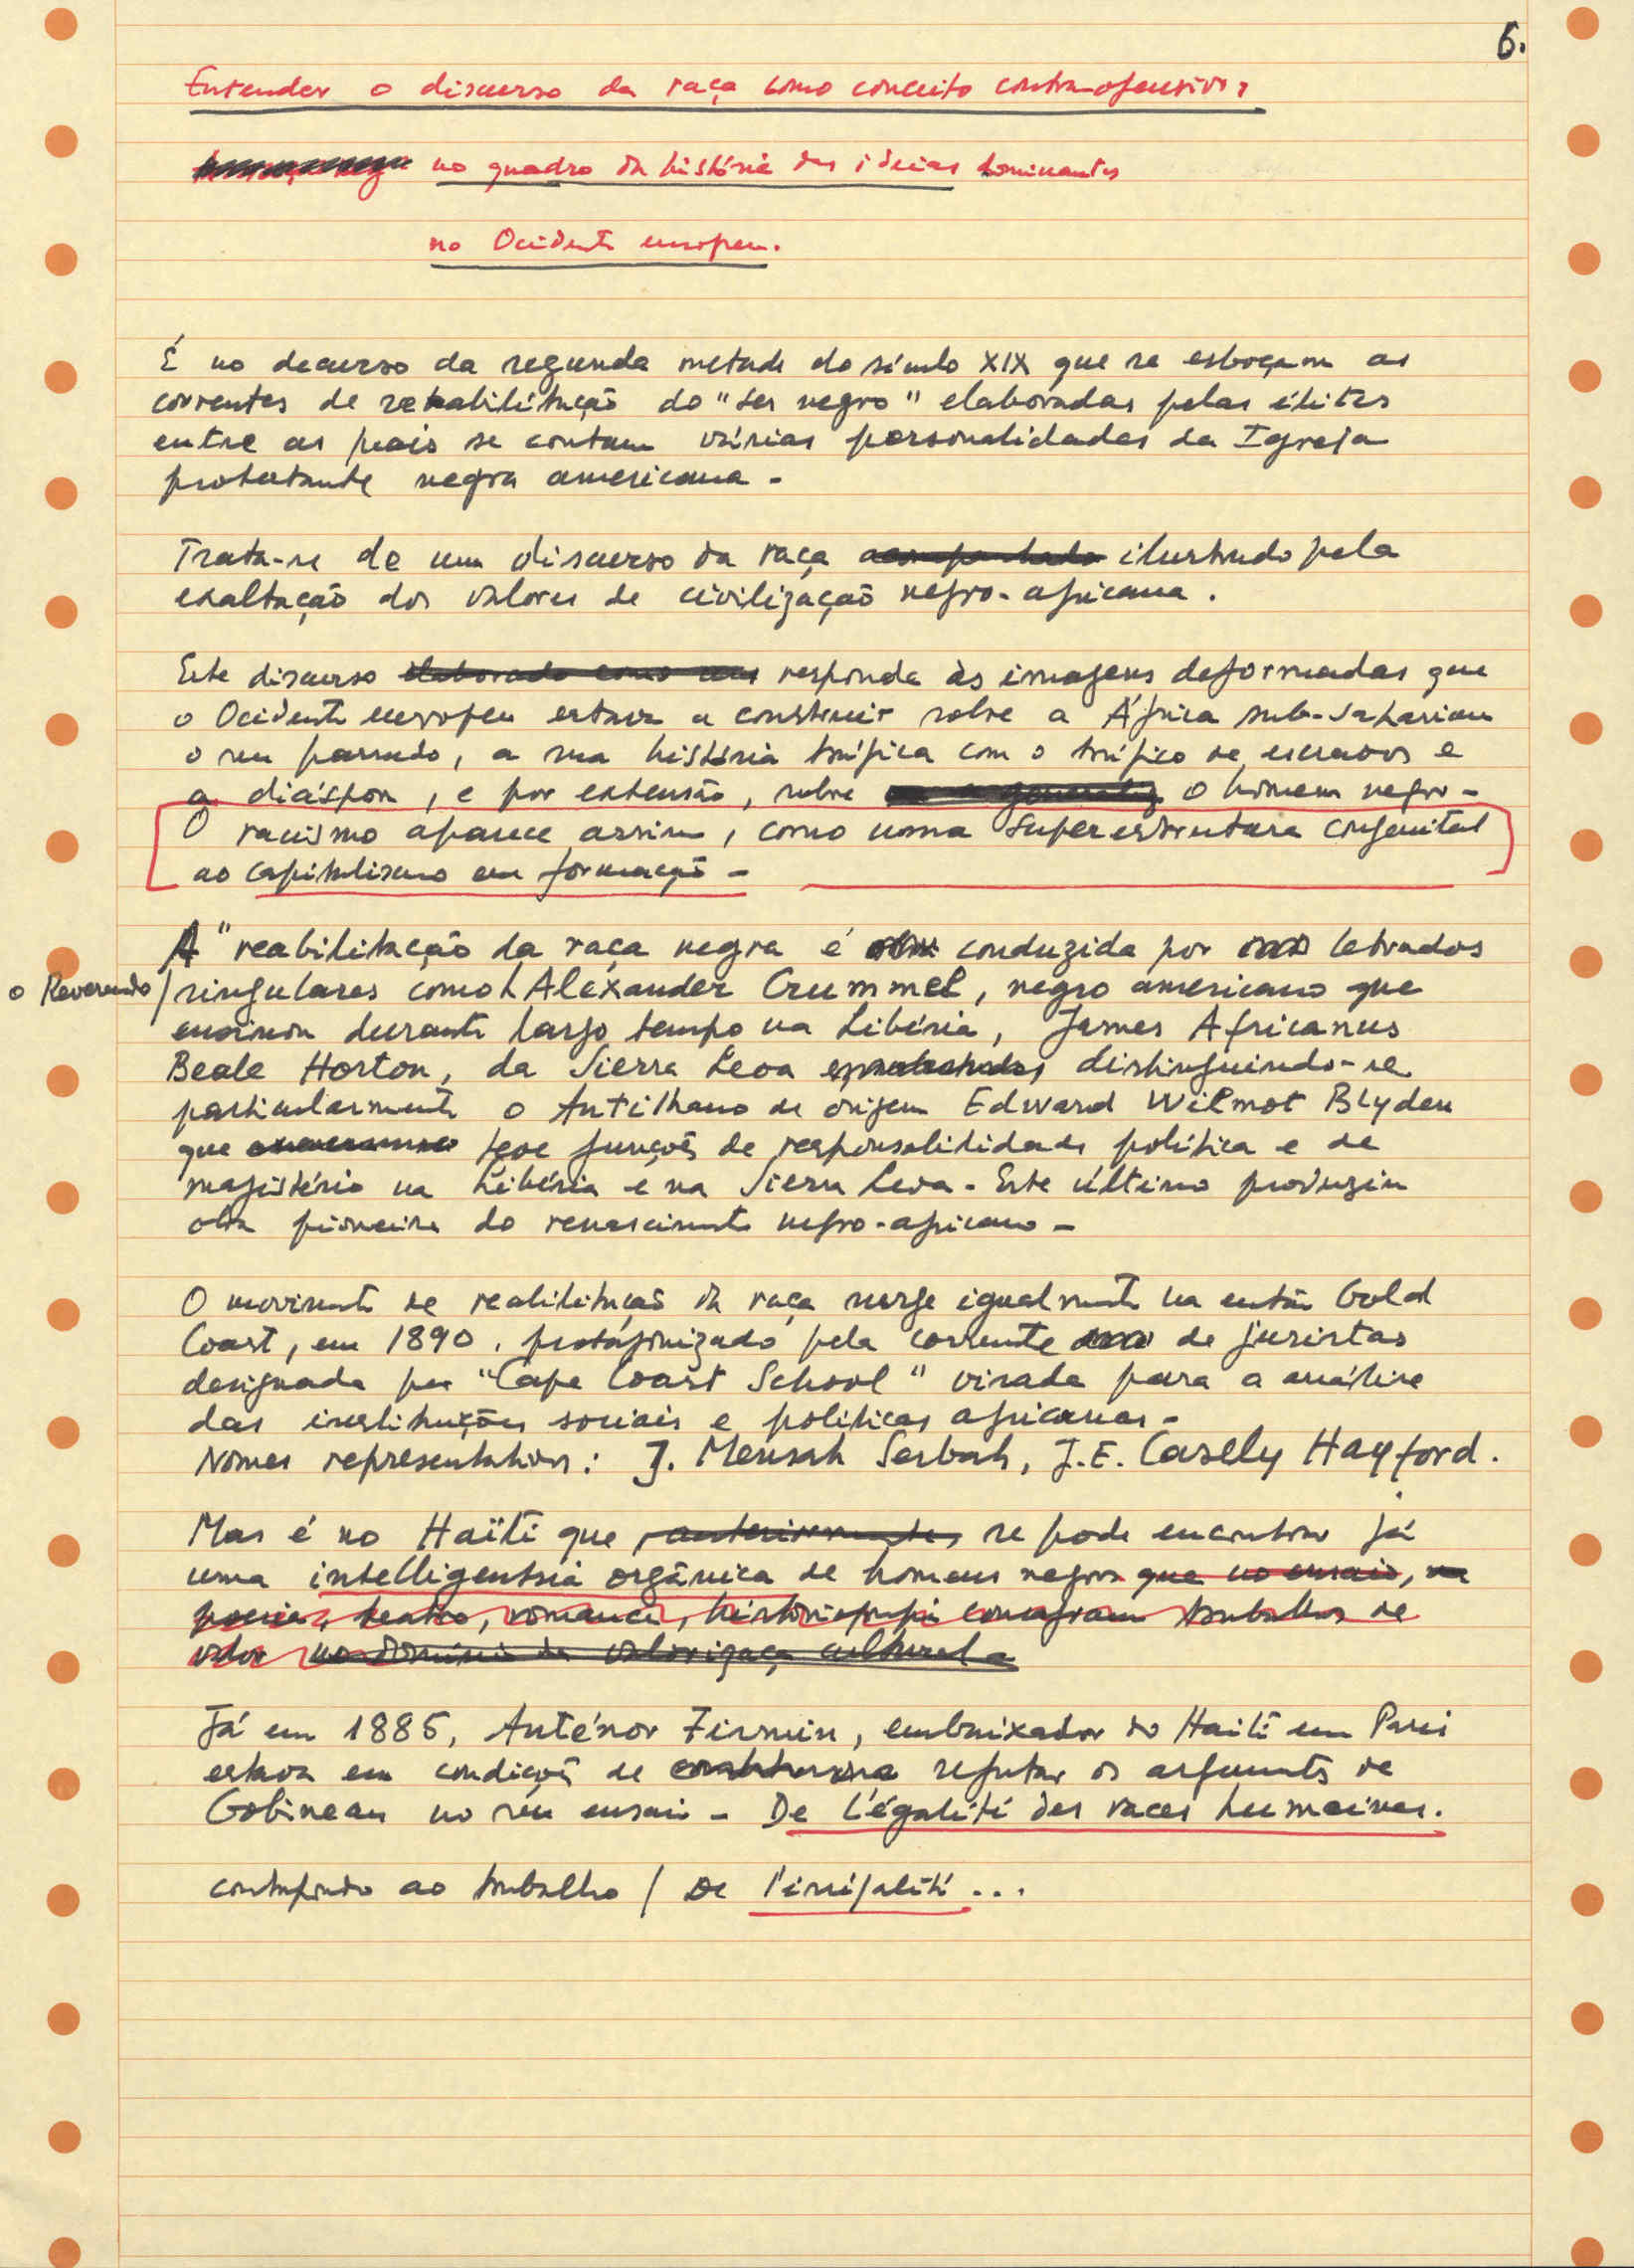 6.
Entender o discurso da raça como conceito contra-ofensivo,
no quadro da história das ideias dominantes
no Ocidente europeu.
É no decurso da segunda metade do século XIX que se esboçam as
correntes de reabilitação do "ser negro" elaboradas pelas élites
entre as quais se contam várias personalidades da Igreja
protestante negra americana.
Trata-se de um discurso da raça acompanhado ilustrado pela
exaltação dos valores de civilização negro-africana.
Este discurso elaborado como uma responde às imagens deformadas que
o Ocidente europeu estava a construir sobre a África sub-sahariana
o seu passado, a sua história trágica com o tráfico de escravos e
a diáspora, e por extensão, sobre o homem negro-
O racismo aparece assim, como uma superestrutura congenital
ao capitalismo em formação-
A "reabilitação da raça negra é conduzida por letrados
o Reverendo / singulares como Alexander Crummel, negro americano que
ensinou durante largo tempo na Libéria, James Africanus
Beale Horton, da Sierra Leoa distinguindo-se
particularmente o Antilhano de origem Edward Wilmot Blyden
que teve funções de responsabilidade política e de
magistério na Libéria e na Sierra Leoa- Este último produziu
obra pioneira do renascimento negro-africano-
O movimento de reabilitação da raça surge igualmente na então Gold
Coast, em 1890, protagonizado pela corrente de juristas
designada por "Cape Coast School" virada para a análise
das instituições sociais e políticas africanas-
Nomes representativos: J. Mensah Sarbah, J.E. Casely Hayford.
Mas é no Haïti que, anteriormente, se pode encontrar já
uma intelligentsia orgânica de homens negros que no ensaio, na
poesia, teatro, romance, historiografia consagram trabalhos de
valor no domínio da valorização cultural-
Já em 1885, Anténor Firmin, embaixador do Haïti em Paris
estava em condições de refutar os argumentos de
Gobineau no seu ensaio - De l'égalité des races humaines.
contraponto ao trabalho / De l'inégalité...